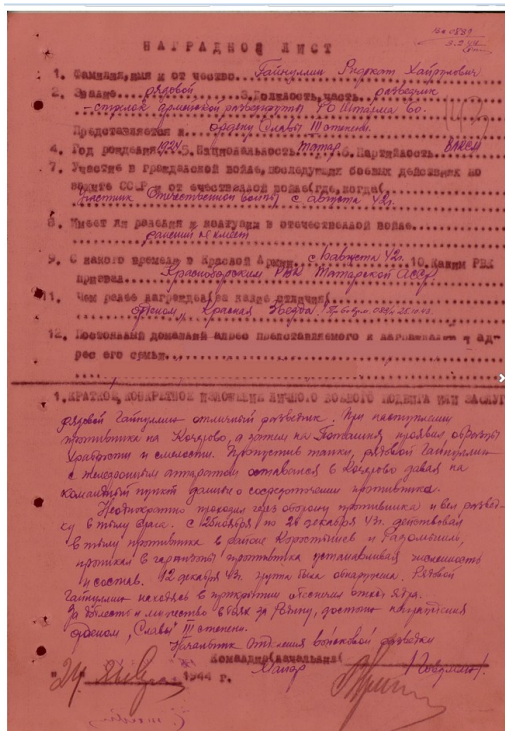 НАГРАДНОЙ ЛИСТ
1. Фамилия, имя и отчество Гайнуллин Хайруллович
2. Звание рядовой 3. Должность, часть разведчик
-стрелок армейской разведгруппы РО Штарма
Представляется к ордену Славы III степени.
4. Год рождения 1924 5. Национальность татар 6. Партийность ВЛКСМ
7. Участие в гражданской войне, последующих боевых действиях по
защите СССР и отечественной войне (где, когда)
участник Отечественной войны с августа 42г.
8. Имеет ли ранения и контузии в отечественной войне
ранений не имеет
9. С какого времени в Красной Армии с августа 42г. 10. Каким РВК
призван РВК Татарской АССР
11. Чем ранее награжден за какие отличия
орденом "Красная Звезда"
12. Постоянный домашний адрес представляемого к награждению и ад-
рес его семьи
1. КРАТКОЕ, КОНКРЕТНОЕ ИЗЛОЖЕНИЕ ЛИЧНОГО БОЕВОГО ПОДВИГА ИЛИ ЗАСЛУГ
рядовой Гайнуллин отличный разведчик. При наступлении
противника на Кочерово, а потом на проявил образцы
храбрости и смелости. Пропустив танки, рядовой Гайнуллин
с телефонным аппаратом оставался в Кочерово давая на
командный пункт данные о сосредоточении противника.
Неоднократно проходил через оборону противника и вел развед-
ку в тылу врага. С 25 ноября по 26 декабря 43г. действовал
в тылу противника в районе Коростышев и Радомышль,
проникал в гарнизоны противника устанавливая численность
и состав. 12 декабря 43г. группа была обнаружена. Рядовой
Гайнуллин находясь в прикрытии обеспечил отход ядра.
За доблесть и мужество в боях за Родину, достоин награждения
орденом "Славы" III степени.
Начальник отделения войсковой разведки
Командир (начальник)
Майор
1944 г.